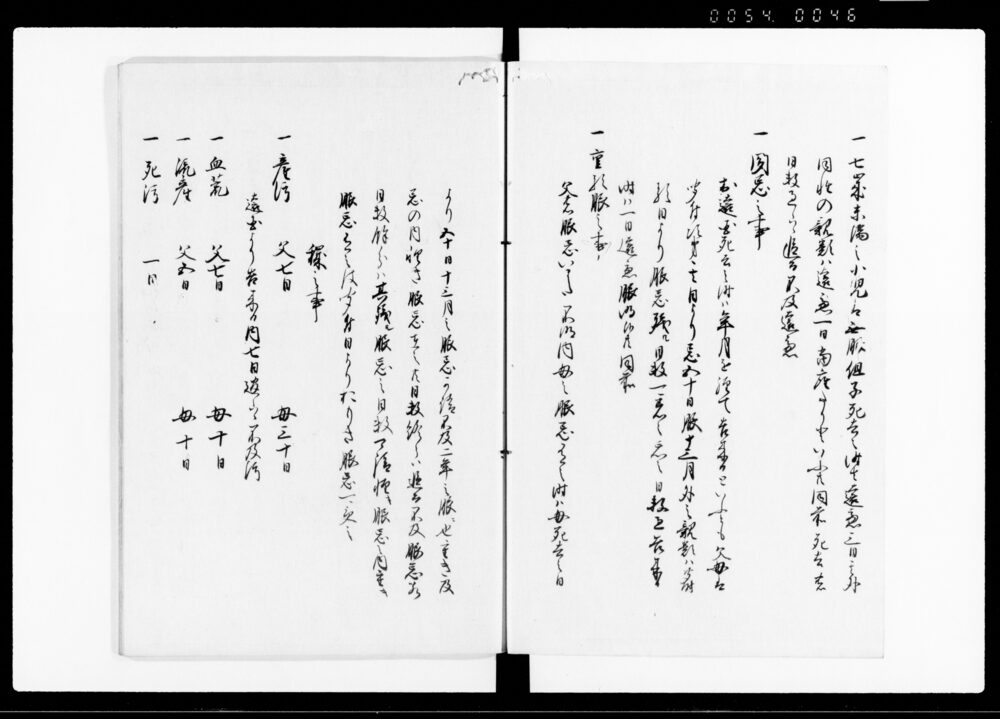 0054 0046
一 七歳未満之小児ハ無服但子死去之時者遠慮三日之外
同姓の親類ハ遠慮一日
日数過候ハ追而不及遠慮
一 聞忌之事
於遠国死去之時ハ年月を経て告来るといふとも父母ハ
聞付候日より忌五十日服十三月外之親類ハ聞付
候日より服忌残之日数
時ハ一日遠慮服明候ハ同前
一 重服之事
父之服忌いまた不明内母之服忌有之時ハ母死去之日
より五十日十三月之服忌可請不及二年之服也
忌の内軽き服忌有之日数終らハ追而不及服忌若
日数餘らハ其残服忌之日数可請軽き服忌之内重き
服忌有之ハ聞付日よりおもき服忌可受之
穢之事
一 産穢 父七日 母三十日
遠国より告来る内七日過候ハ不及穢
一 血荒 父七日 母十日
一 流産 父五日 母十日
一 死穢 一日